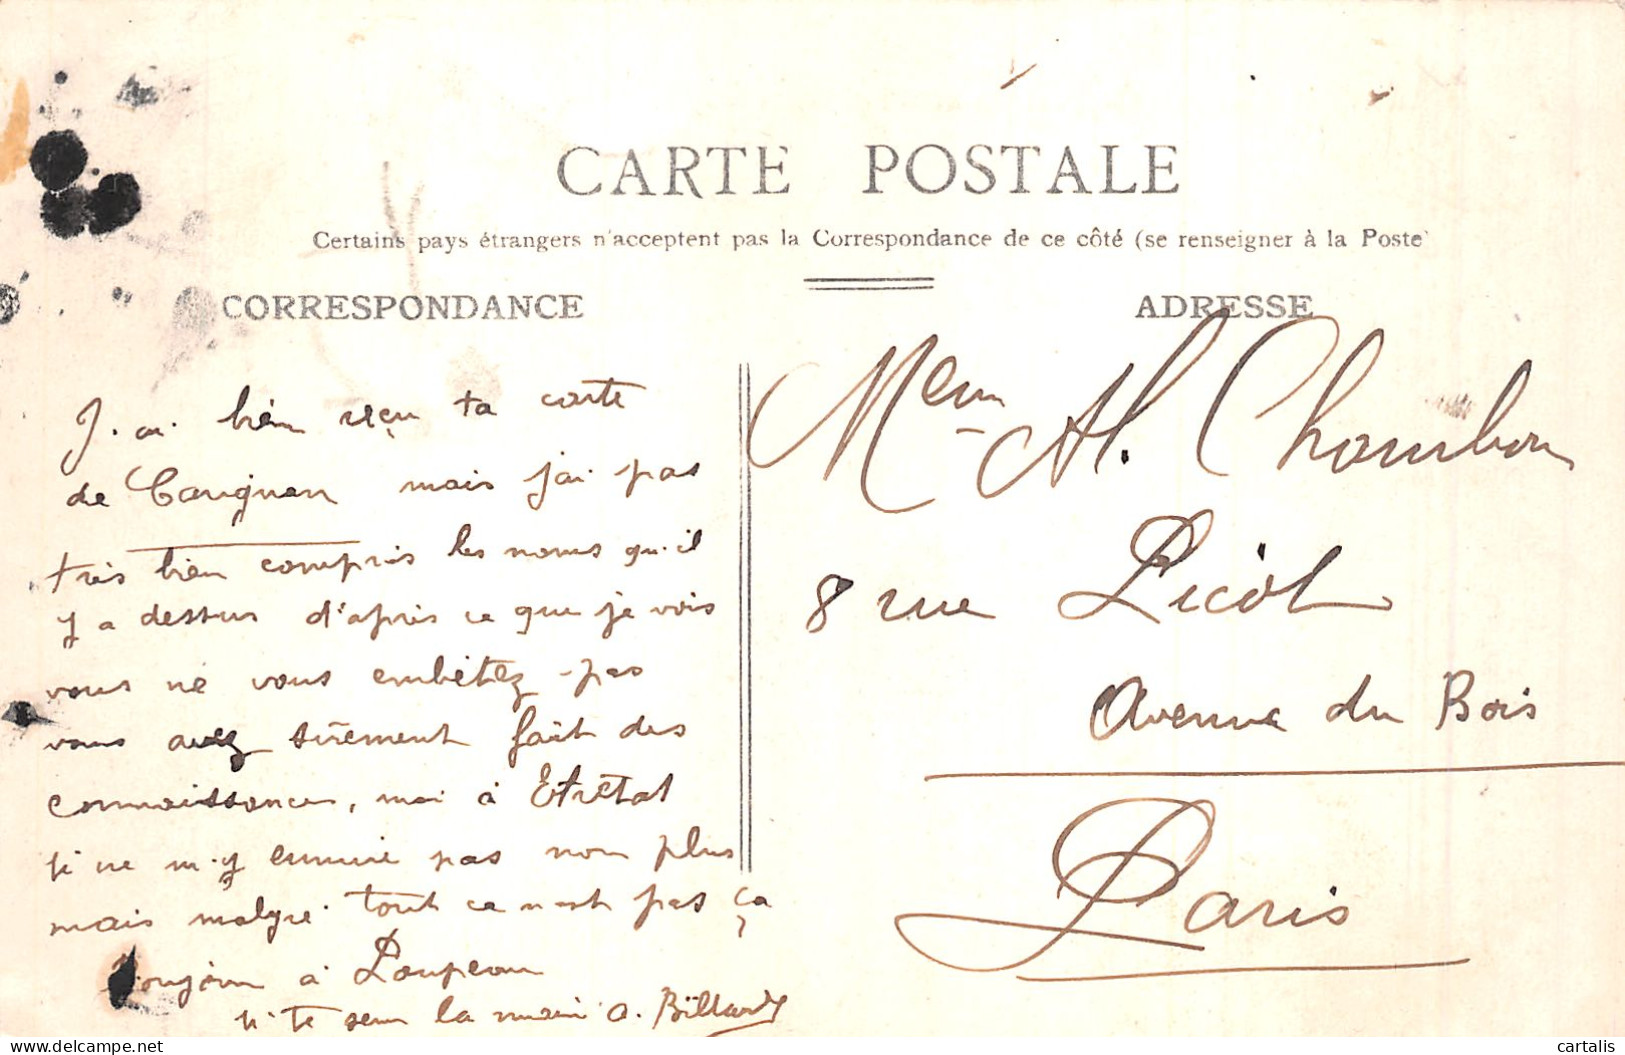 CARTE POSTALE
Certains pays étrangers n'acceptent pas la Correspondance de ce côté (se renseigner à la Poste
CORRESPONDANCE
ADRESSE
J. ai bien reçu ta carte
de Carignan mais j'ai pas
très bien compris les noms qu.il
y a dessus d'après ce que je vois
vous ne vous embêtez pas
vous avez sûrement fait des
connaissances, moi à Etretat
je ne m.y ennuie pas non plus
mais malgré tout ce n'est pas ça
Bonjour à Poupeau
je te serre la main A. Billard
Mem H. Chambon
8 rue Picôt
Avenue du Bois
Paris
cartalis
www.delcampe.net